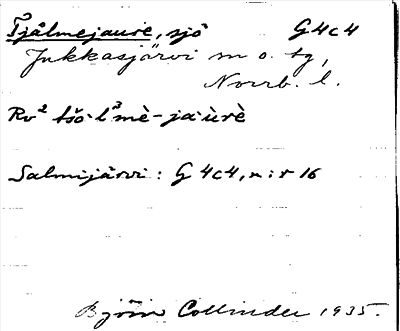 Tjålmejaure, sjö G4c4
Jukkasjärvi sn o. tg,
Norrb. l.
Rv² tšå·l³mè-ja·ùrè
Salmijärvi: G 4c4, n:r 16
Björn Collinder 1935.